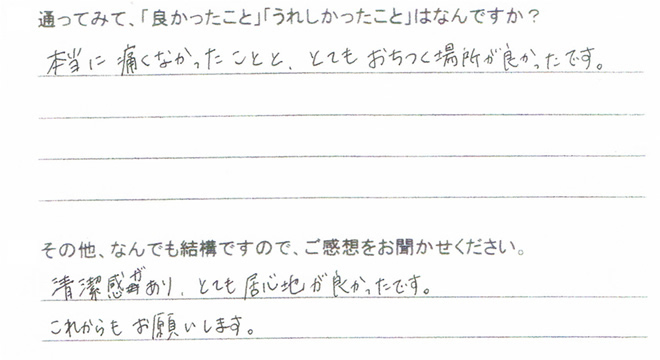 通ってみて、「良かったこと」「うれしかったこと」はなんですか？
本当に痛くなかったことと、とてもおちつく場所が良かったです。
その他、なんでも結構ですので、ご感想をお聞かせください。
清潔感があり、とても居心地が良かったです。
これからもお願いします。